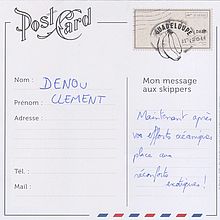 Post Card
GUADELOUPE
Nom : DENOU
Prénom : CLEMENT
Adresse :
Tél. :
Mail :
Mon message
aux skippers
Maintenant après
vos efforts océaniques
place aux
réconforts
exotiques !